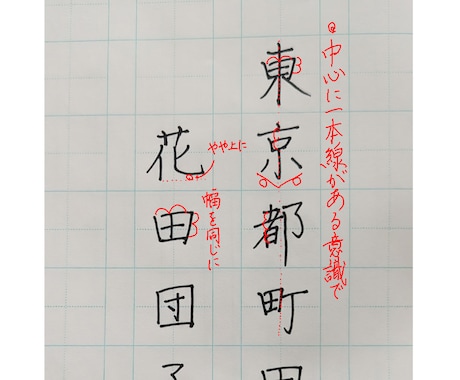 中心に一本線がある意識で
東京都町田
やや上に
幅を同じに
花田団子